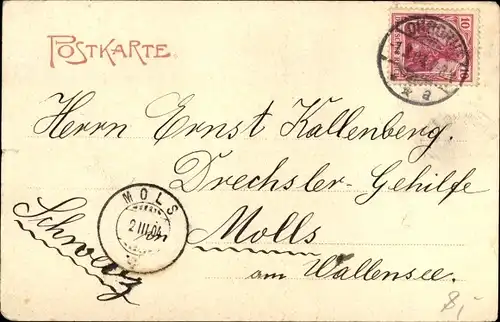 POSTKARTE
10
10
a
Herrn Ernst Kallenberg.
Drechsler-Gehilfe
MOLS
2 III.04
Schweiz
Molls
am Wallensee.
8,-